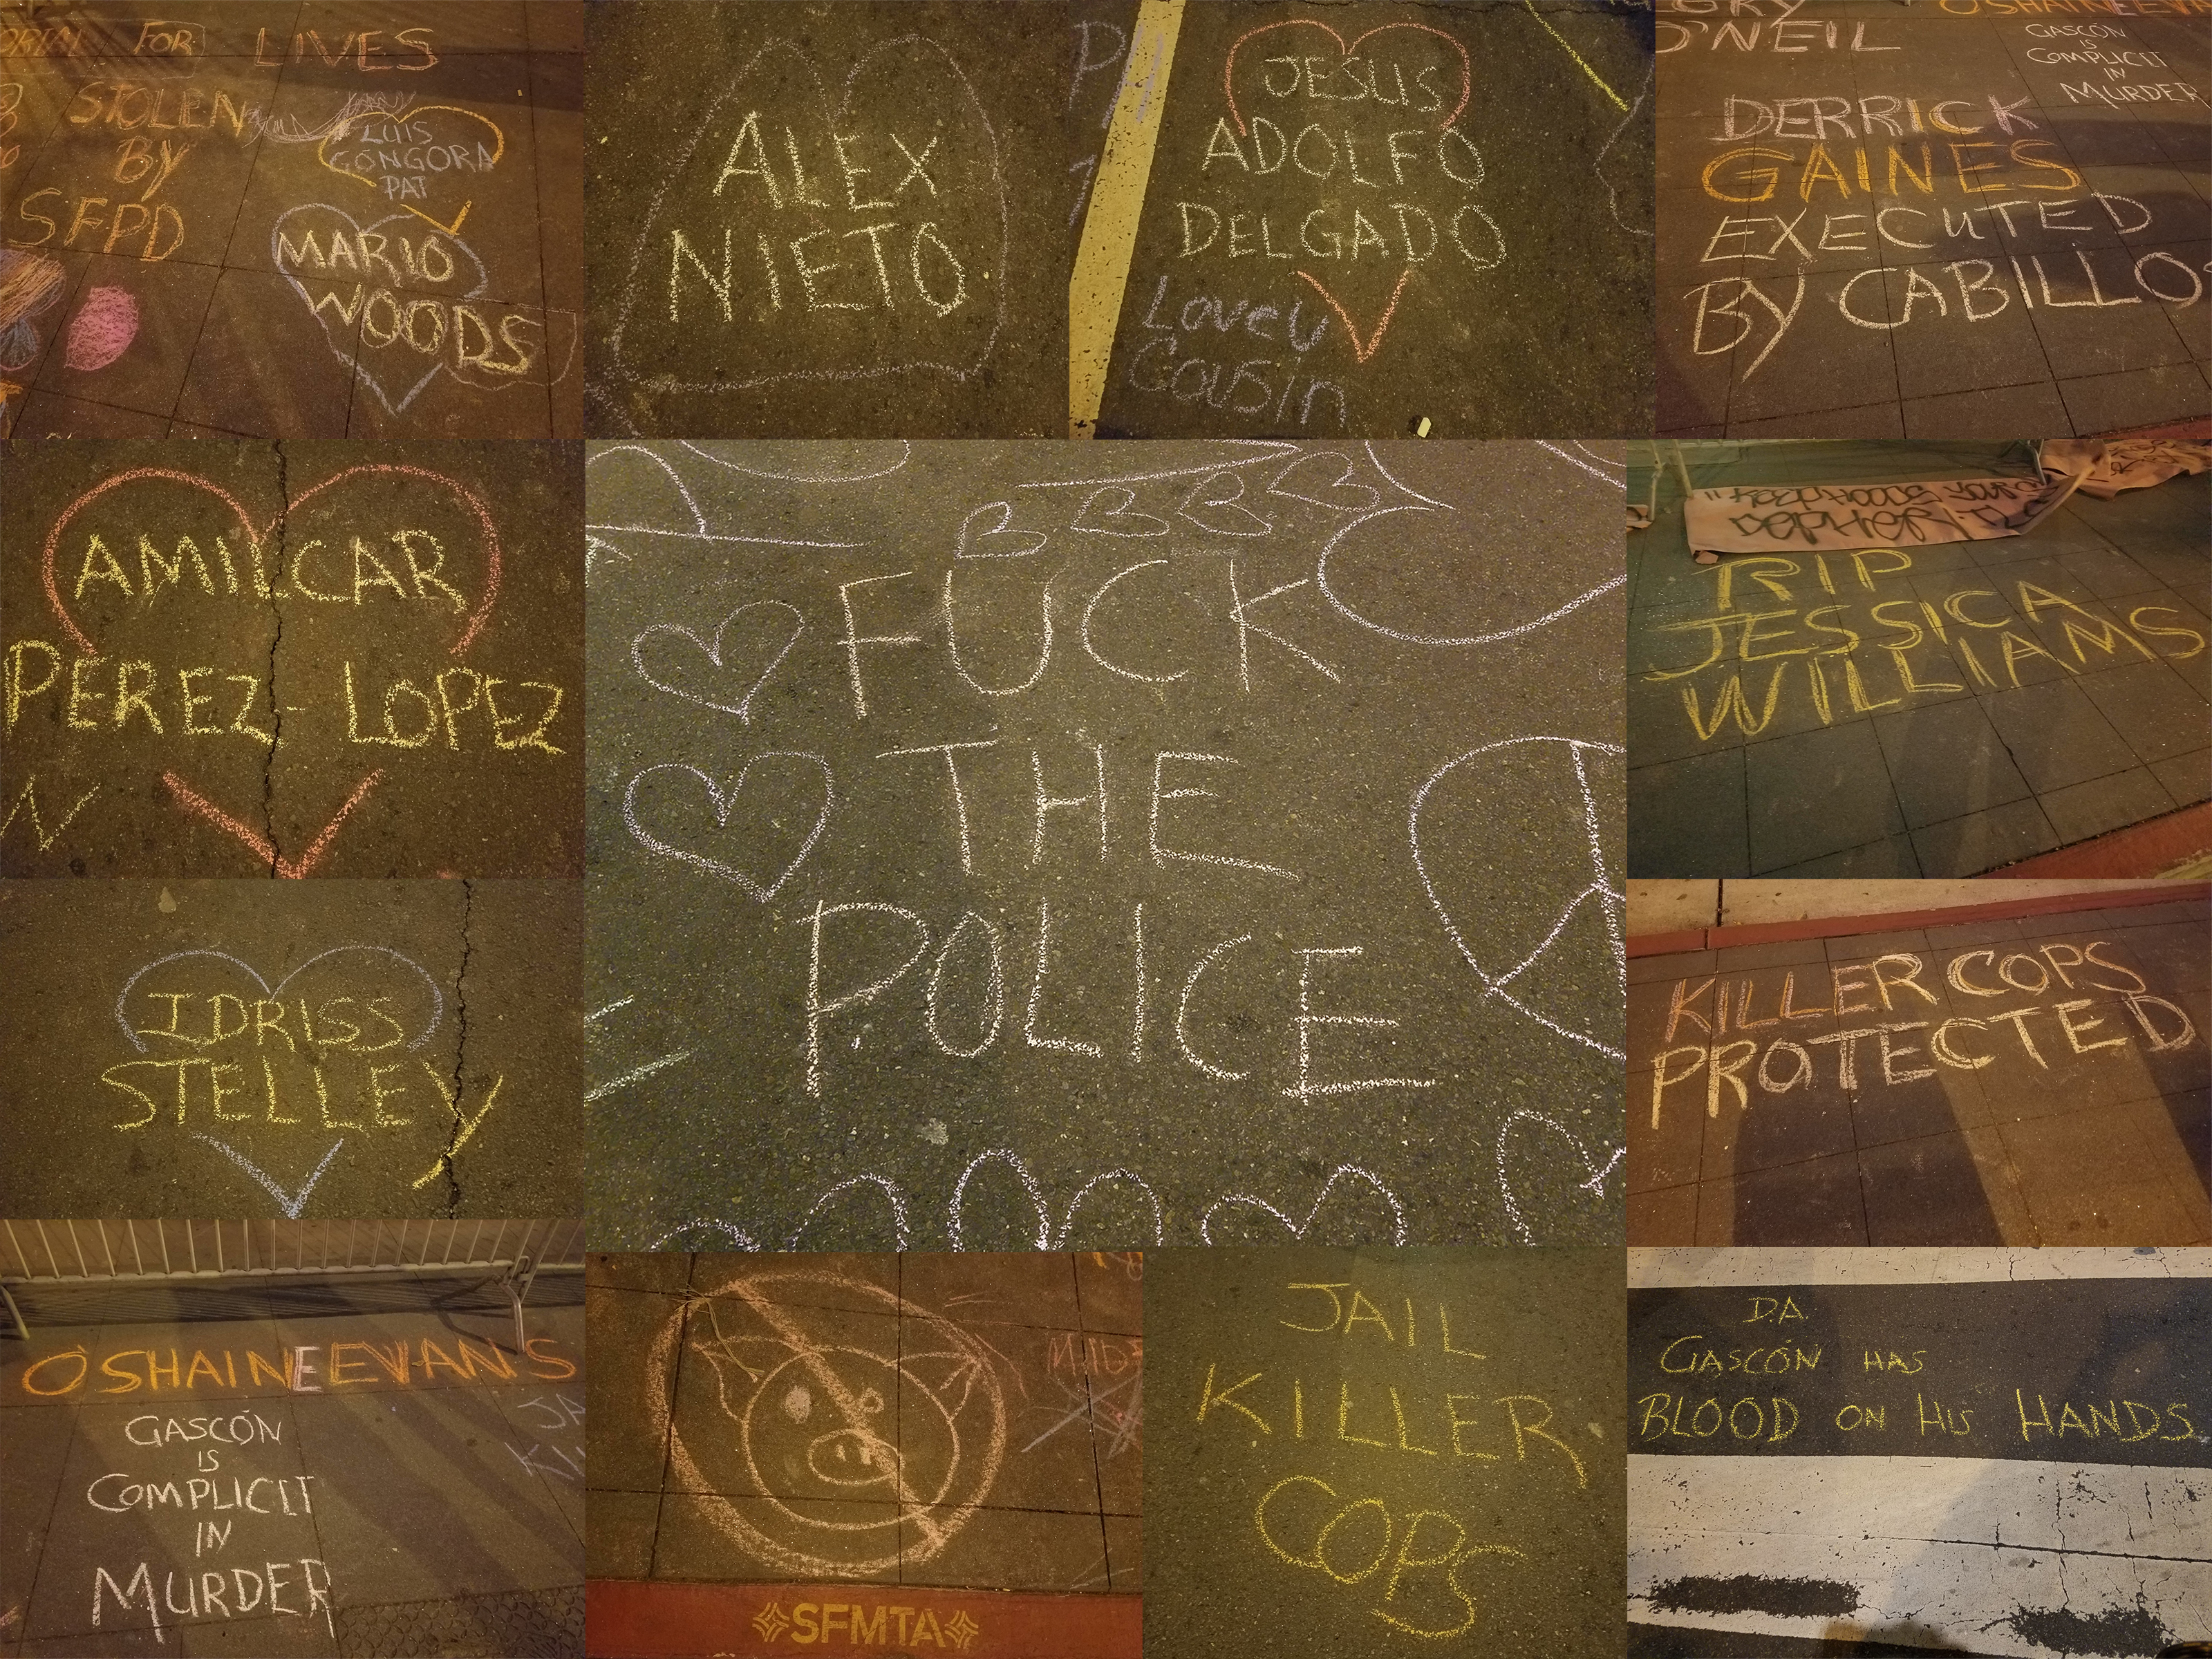 FOR LIVES
STOLEN
BY
SFPD
LUIS
GONGORA
PAT
MARIO
WOODS
ALEX
NIETO
JESUS
ADOLFO
DELGADO
Love U
Cousin
O'NEIL
OSHAINE EVA
GASCÓN
IS
COMPLICIT
IN
MURDER
DERRICK
GAINES
EXECUTED
BY CABILLO
AMILCAR
PEREZ-LOPEZ
N
FUCK
THE
POLICE
RIP
JESSICA
WILLIAMS
IDRISS
STELLEY
KILLER COPS
PROTECTED
OSHAINE EVANS
GASCÓN
IS
COMPLICIT
IN
MURDER
SFMTA
JAIL
KILLER
COPS
D.A.
GASCÓN HAS
BLOOD ON HIS HANDS